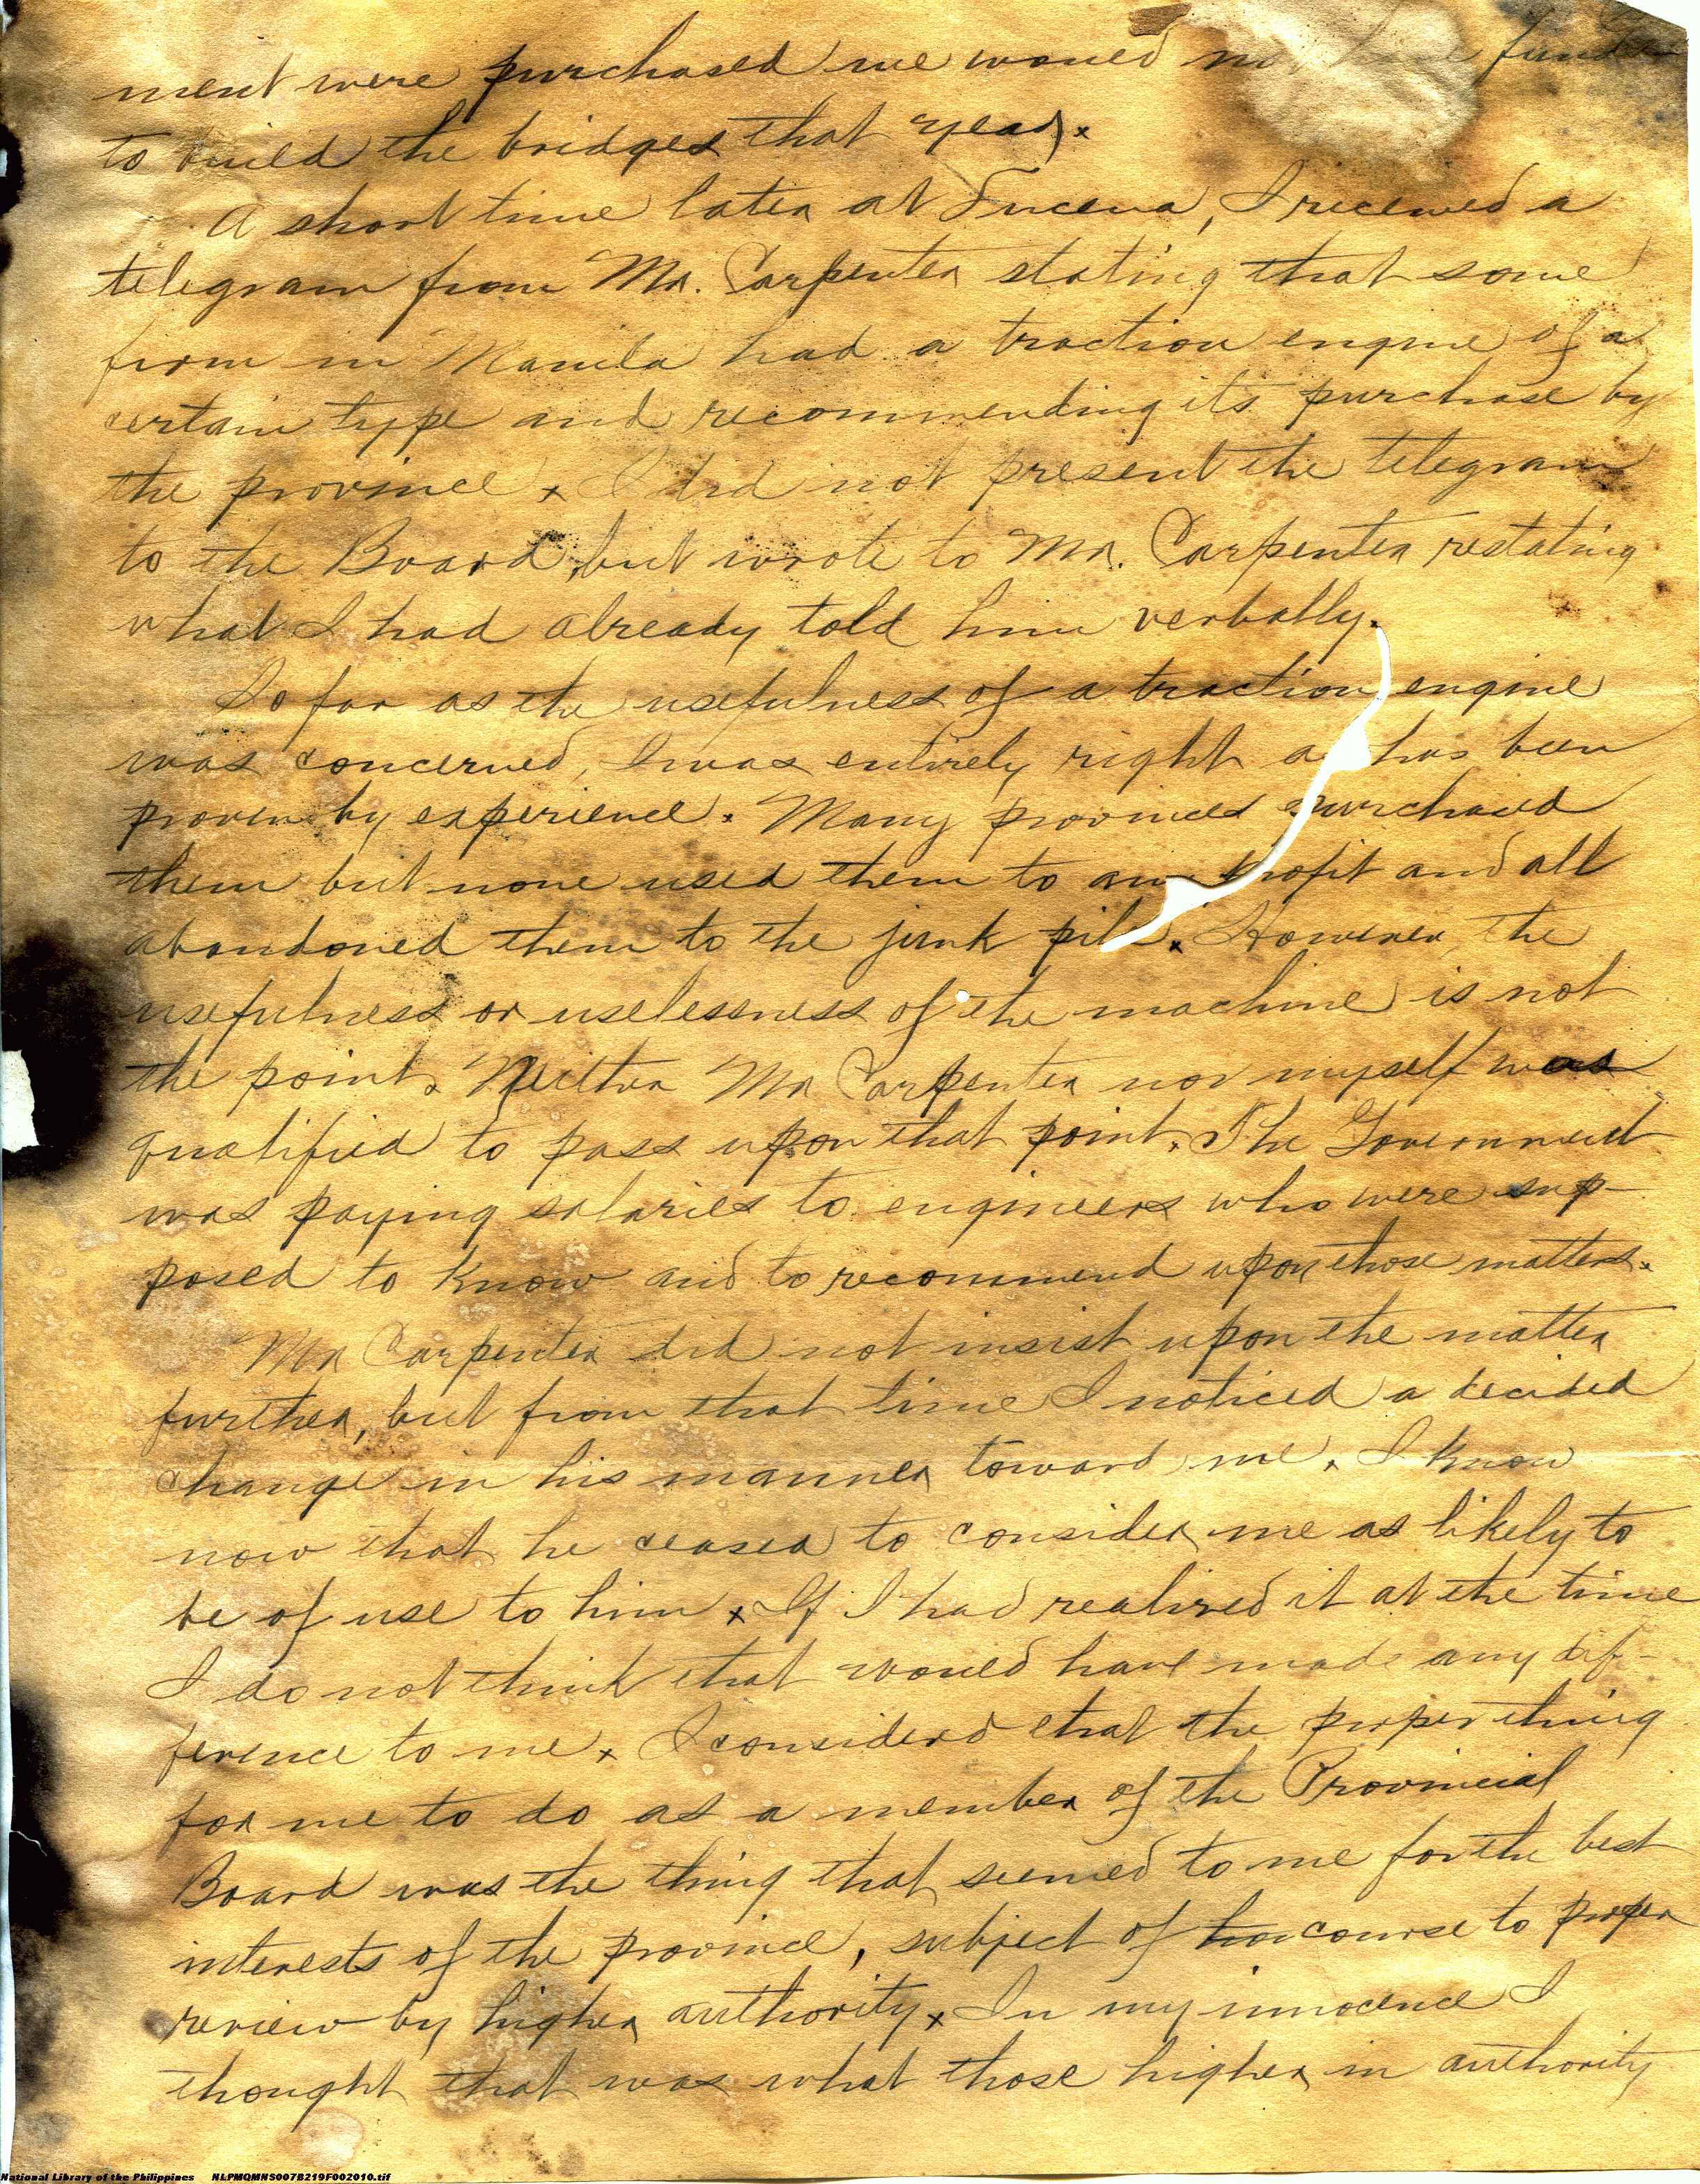 ment were purchased we would not have funds
to build the bridges that year.
A short time later at Lucena, I received a
telegram from Mr. Carpenter stating that some
firm in Manila had a traction engine of a
certain type and recommending its purchase by
the province. I did not present the telegram
to the Board, but wrote to Mr. Carpenter restating
what I had already told him verbally.
So far as the usefulness of a traction engine
was concerned, I was entirely right as has been
proven by experience. Many provinces purchased
them but none used them to any profit and all
abandoned them to the junk pile. However, the
usefulness or uselessness of the machine is not
the point. Neither Mr Carpenter nor myself was
qualified to pass upon that point. The Government
was paying salaries to engineers who were sup-
posed to know and to recommend upon those matters.
Mr Carpenter did not insist upon the matter
further, but from that time I noticed a decided
change in his manner toward me. I know
now that he ceased to consider me as likely to
be of use to him. If I had realized it at the time
I do not think that would have made any dif-
ference to me. I considerd that the proper thing
for me to do as a member of the Provincial
Board was the thing that seemed to me for the best
interests of the province, subject of course to proper
review by higher authority. In my innocence I
thought that was what those higher in authority
National Library of the Philippines NLPMQMNS007B219F002010.tif